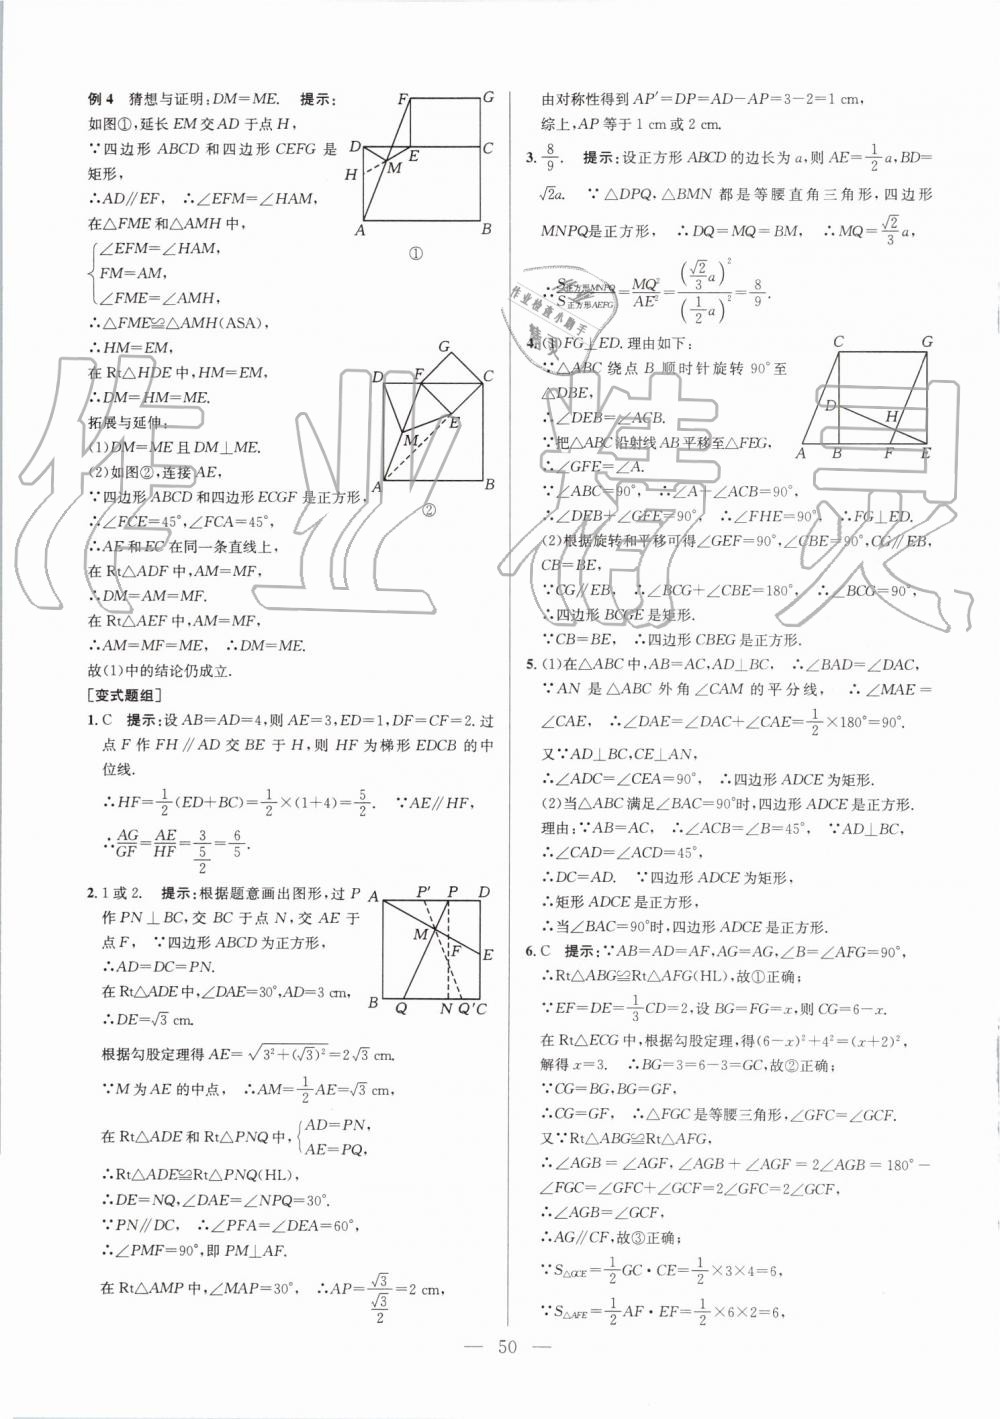 例4 猜想与证明:DM=ME. 提示:
如图①,延长EM交AD于点H,
∵四边形ABCD和四边形CEFG是
矩形,
∴AD∥EF, ∴∠EFM=∠HAM,
在△FME和△AMH中,
∠EFM=∠HAM,
FM=AM,
∠FME=∠AMH,
∴△FME≌△AMH(ASA),
∴HM=EM,
在Rt△HDE中,HM=EM,
∴DM=HM=ME.
∴DM=ME.
拓展与延伸:
(1)DM=ME且DM⊥ME.
(2)如图②,连接AE,
∵四边形ABCD和四边形ECGF是正方形,
∴∠FCE=45°,∠FCA=45°,
∴AE和EC在同一条直线上,
在Rt△ADF中,AM=MF,
∴DM=AM=MF.
在Rt△AEF中,AM=MF,
∴AM=MF=ME, ∴DM=ME.
故(1)中的结论仍成立.
[变式题组]
1. C 提示:设AB=AD=4,则AE=3,ED=1,DF=CF=2.过
点F作FH∥AD交BE于H,则HF为梯形EDCB的中
位线.
∴HF=1/2(ED+BC)=1/2×(1+4)=5/2. ∵AE∥HF,
∴AG/GF=AE/HF=3/(5/2)=6/5.
2. 1或2. 提示:根据题意画出图形,过P
作PN⊥BC,交BC于点N,交AE于
点F, ∵四边形ABCD为正方形,
∴AD=DC=PN.
在Rt△ADE中,∠DAE=30°,AD=3 cm,
∴DE=√3 cm.
根据勾股定理得AE=√(3²+(√3)²)=2√3 cm.
∵M为AE的中点, ∴AM=1/2AE=√3 cm,
在Rt△ADE和Rt△PNQ中,{AD=PN,
AE=PQ,
∴Rt△ADE≌Rt△PNQ(HL),
∴DE=NQ,∠DAE=∠NPQ=30°.
∵PN∥DC, ∴∠PFA=∠DEA=60°,
∴∠PMF=90°,即PM⊥AF.
在Rt△AMP中,∠MAP=30°, ∴AP=√3/(√3/2)=2 cm,
由对称性得到AP′=DP=AD-AP=3-2=1 cm,
综上,AP等于1 cm或2 cm.
3. 8/9. 提示:设正方形ABCD的边长为a,则AE=1/2a,BD=
√2a. ∵△DPQ,△BMN都是等腰直角三角形,四边形
MNPQ是正方形, ∴DQ=MQ=BM, ∴MQ=√2/3a,
∴S正方形MNPQ/S正方形AEFG=MQ²/AE²=(√2/3a)²/(1/2a)²=8/9.
4. (1)FG⊥ED.理由如下:
∵△ABC绕点B顺时针旋转90°至
△DBE,
∴∠DEB=∠ACB.
∵把△ABC沿射线AB平移至△FEG,
∴∠GFE=∠A.
∵∠ABC=90°, ∴∠A+∠ACB=90°,
∴∠DEB+∠GFE=90°, ∴∠FHE=90°, ∴FG⊥ED.
(2)根据旋转和平移可得∠GEF=90°,∠CBE=90°,CG∥EB,
CB=BE,
∵CG∥EB, ∴∠BCG+∠CBE=180°, ∴∠BCG=90°,
∴四边形BCGE是矩形.
∵CB=BE, ∴四边形CBEG是正方形.
5. (1)在△ABC中,AB=AC,AD⊥BC, ∴∠BAD=∠DAC,
∵AN是△ABC外角∠CAM的平分线, ∴∠MAE=
∠CAE, ∴∠DAE=∠DAC+∠CAE=1/2×180°=90°.
又∵AD⊥BC,CE⊥AN,
∴∠ADC=∠CEA=90°, ∴四边形ADCE为矩形.
(2)当△ABC满足∠BAC=90°时,四边形ADCE是正方形.
理由:∵AB=AC, ∴∠ACB=∠B=45°, ∵AD⊥BC,
∴∠CAD=∠ACD=45°,
∴DC=AD. ∵四边形ADCE为矩形,
∴矩形ADCE是正方形,
∴当∠BAC=90°时,四边形ADCE是正方形.
6. C 提示:∵AB=AD=AF,AG=AG,∠B=∠AFG=90°,
∴Rt△ABG≌Rt△AFG(HL),故①正确;
∵EF=DE=1/3CD=2,设BG=FG=x,则CG=6-x.
在Rt△ECG中,根据勾股定理,得(6-x)²+4²=(x+2)²,
解得x=3. ∴BG=3=6-3=GC,故②正确;
∵CG=BG,BG=GF,
∴CG=GF, ∴△FGC是等腰三角形,∠GFC=∠GCF.
又∵Rt△ABG≌Rt△AFG,
∴∠AGB=∠AGF,∠AGB+∠AGF=2∠AGB=180°-
∠FGC=∠GFC+∠GCF=2∠GFC=2∠GCF,
∴∠AGB=∠GCF,
∴AG∥CF,故③正确;
∵S△GCE=1/2GC·CE=1/2×3×4=6,
∵S△AFE=1/2AF·EF=1/2×6×2=6,
— 50 —